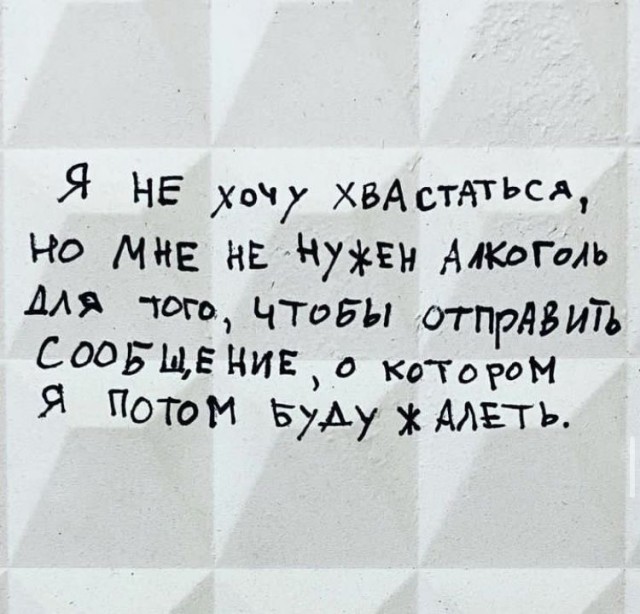 Я НЕ ХОЧУ ХВАСТАТЬСЯ,
НО МНЕ НЕ НУЖЕН АЛКОГОЛЬ
ДЛЯ ТОГО, ЧТОБЫ ОТПРАВИТЬ
СООБЩЕНИЕ, О КОТОРОМ
Я ПОТОМ БУДУ ЖАЛЕТЬ.